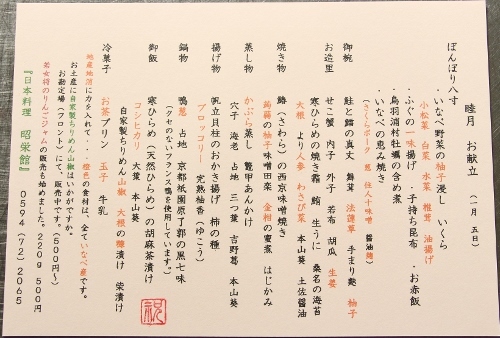 睦月 お献立 （一月 五日）
ぼんぼり八寸
・いなべ野菜の柚子浸し いくら
小松菜 白菜 水菜 椎茸 油揚げ
・ふぐの一味揚げ ・子持ち昆布 ・お赤飯
・鳥羽浦村牡蠣の含め煮
・いなべの恵み焼き
（さくらポーク 葱 住人十味噌 醤油麹）
御椀 鮭と鱈の真丈 舞茸 法蓮草 手まり麩 柚子
お造里 せこ蟹 内子 外子 若布 胡瓜 生姜
寒ひらめの焼き霜 鮪 生うに 桑名の海苔
大根 より人参 わさび菜 本山葵 土佐醤油
焼き物 鰆（さわら）の西京味噌焼き
蒟蒻の柚子味噌田楽 金柑の蜜煮 はじかみ
蒸し物 かぶら蒸し 鼈甲あんかけ
穴子 海老 占地 三つ葉 吉野葛 本山葵
揚げ物 帆立貝柱のおかき揚げ 柿の種
ブロッコリー 完熟柚香（ゆこう）
鍋物 鴨葱 占地 京都祇園原了郭の黒七味
（クセのないフランス鴨を使用しています。）
御飯 寒ひらめ（天然ひらめ）の胡麻茶漬け
コシヒカリ 大葉 本山葵
自家製ちりめん山椒 大根の糠漬け 柴漬け
冷菓子 お茶プリン 玉子 牛乳
地産地消に力を入れて・・橙色の食材は、全ていなべ産です。
お土産に自家製ちりめん山椒はいかがですか。
お勘定場（フロント）にて、販売中です。（５００円〜）
若女将のりんごジャムの販売も始めました。２２０ｇ ５００円
『日本料理 昭栄館』 ０５９４（７２）２０６５
祝